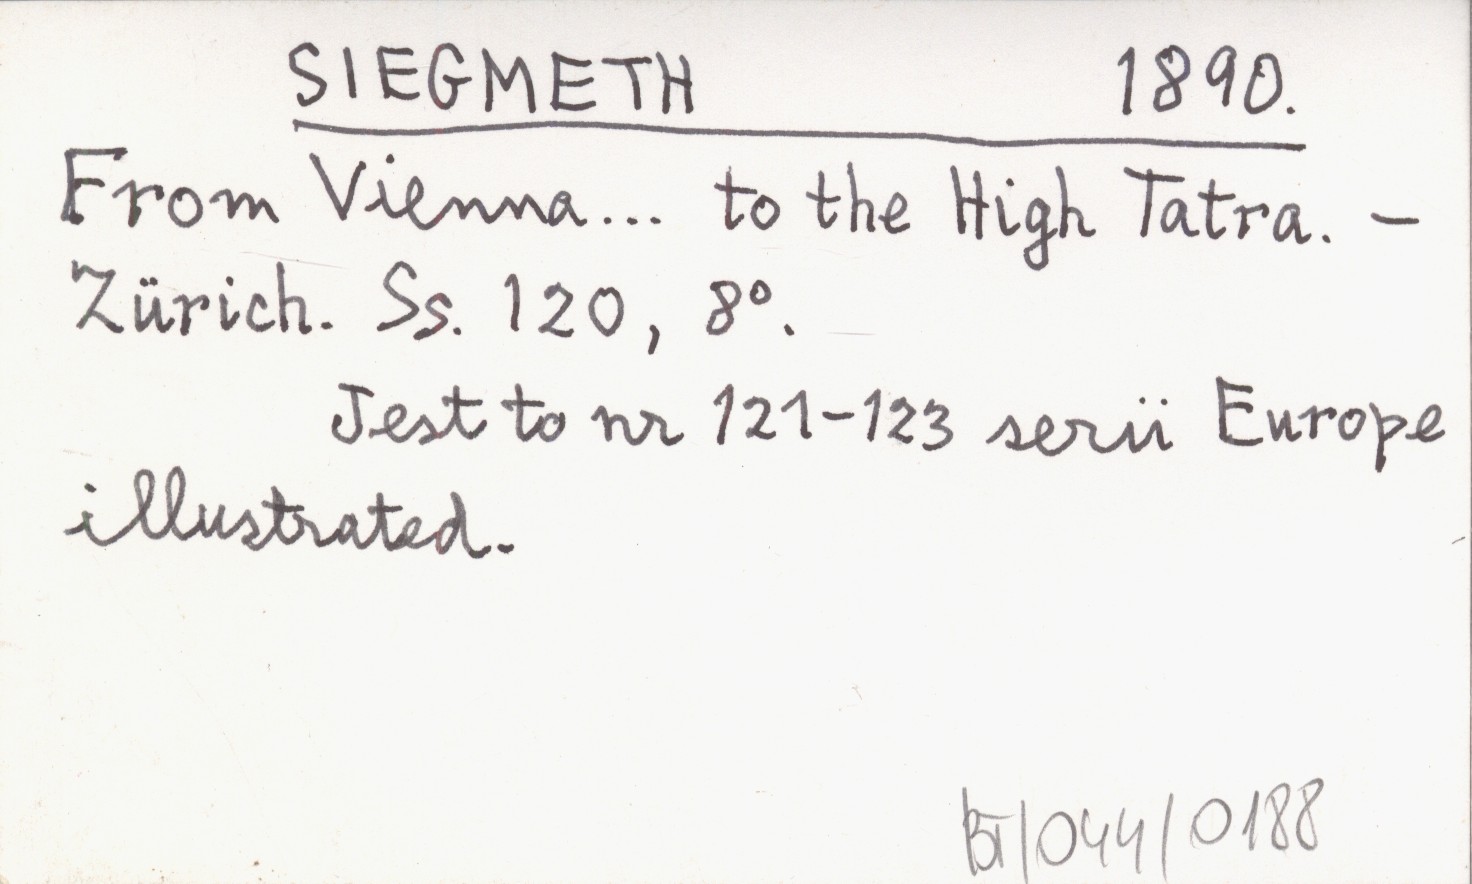 SIEGMETH 1890.
From Vienna... to the High Tatra. –
Zürich. Ss. 120, 8°.
Jest to nr 121-123 serii Europe
illustrated.
BT/044/0188